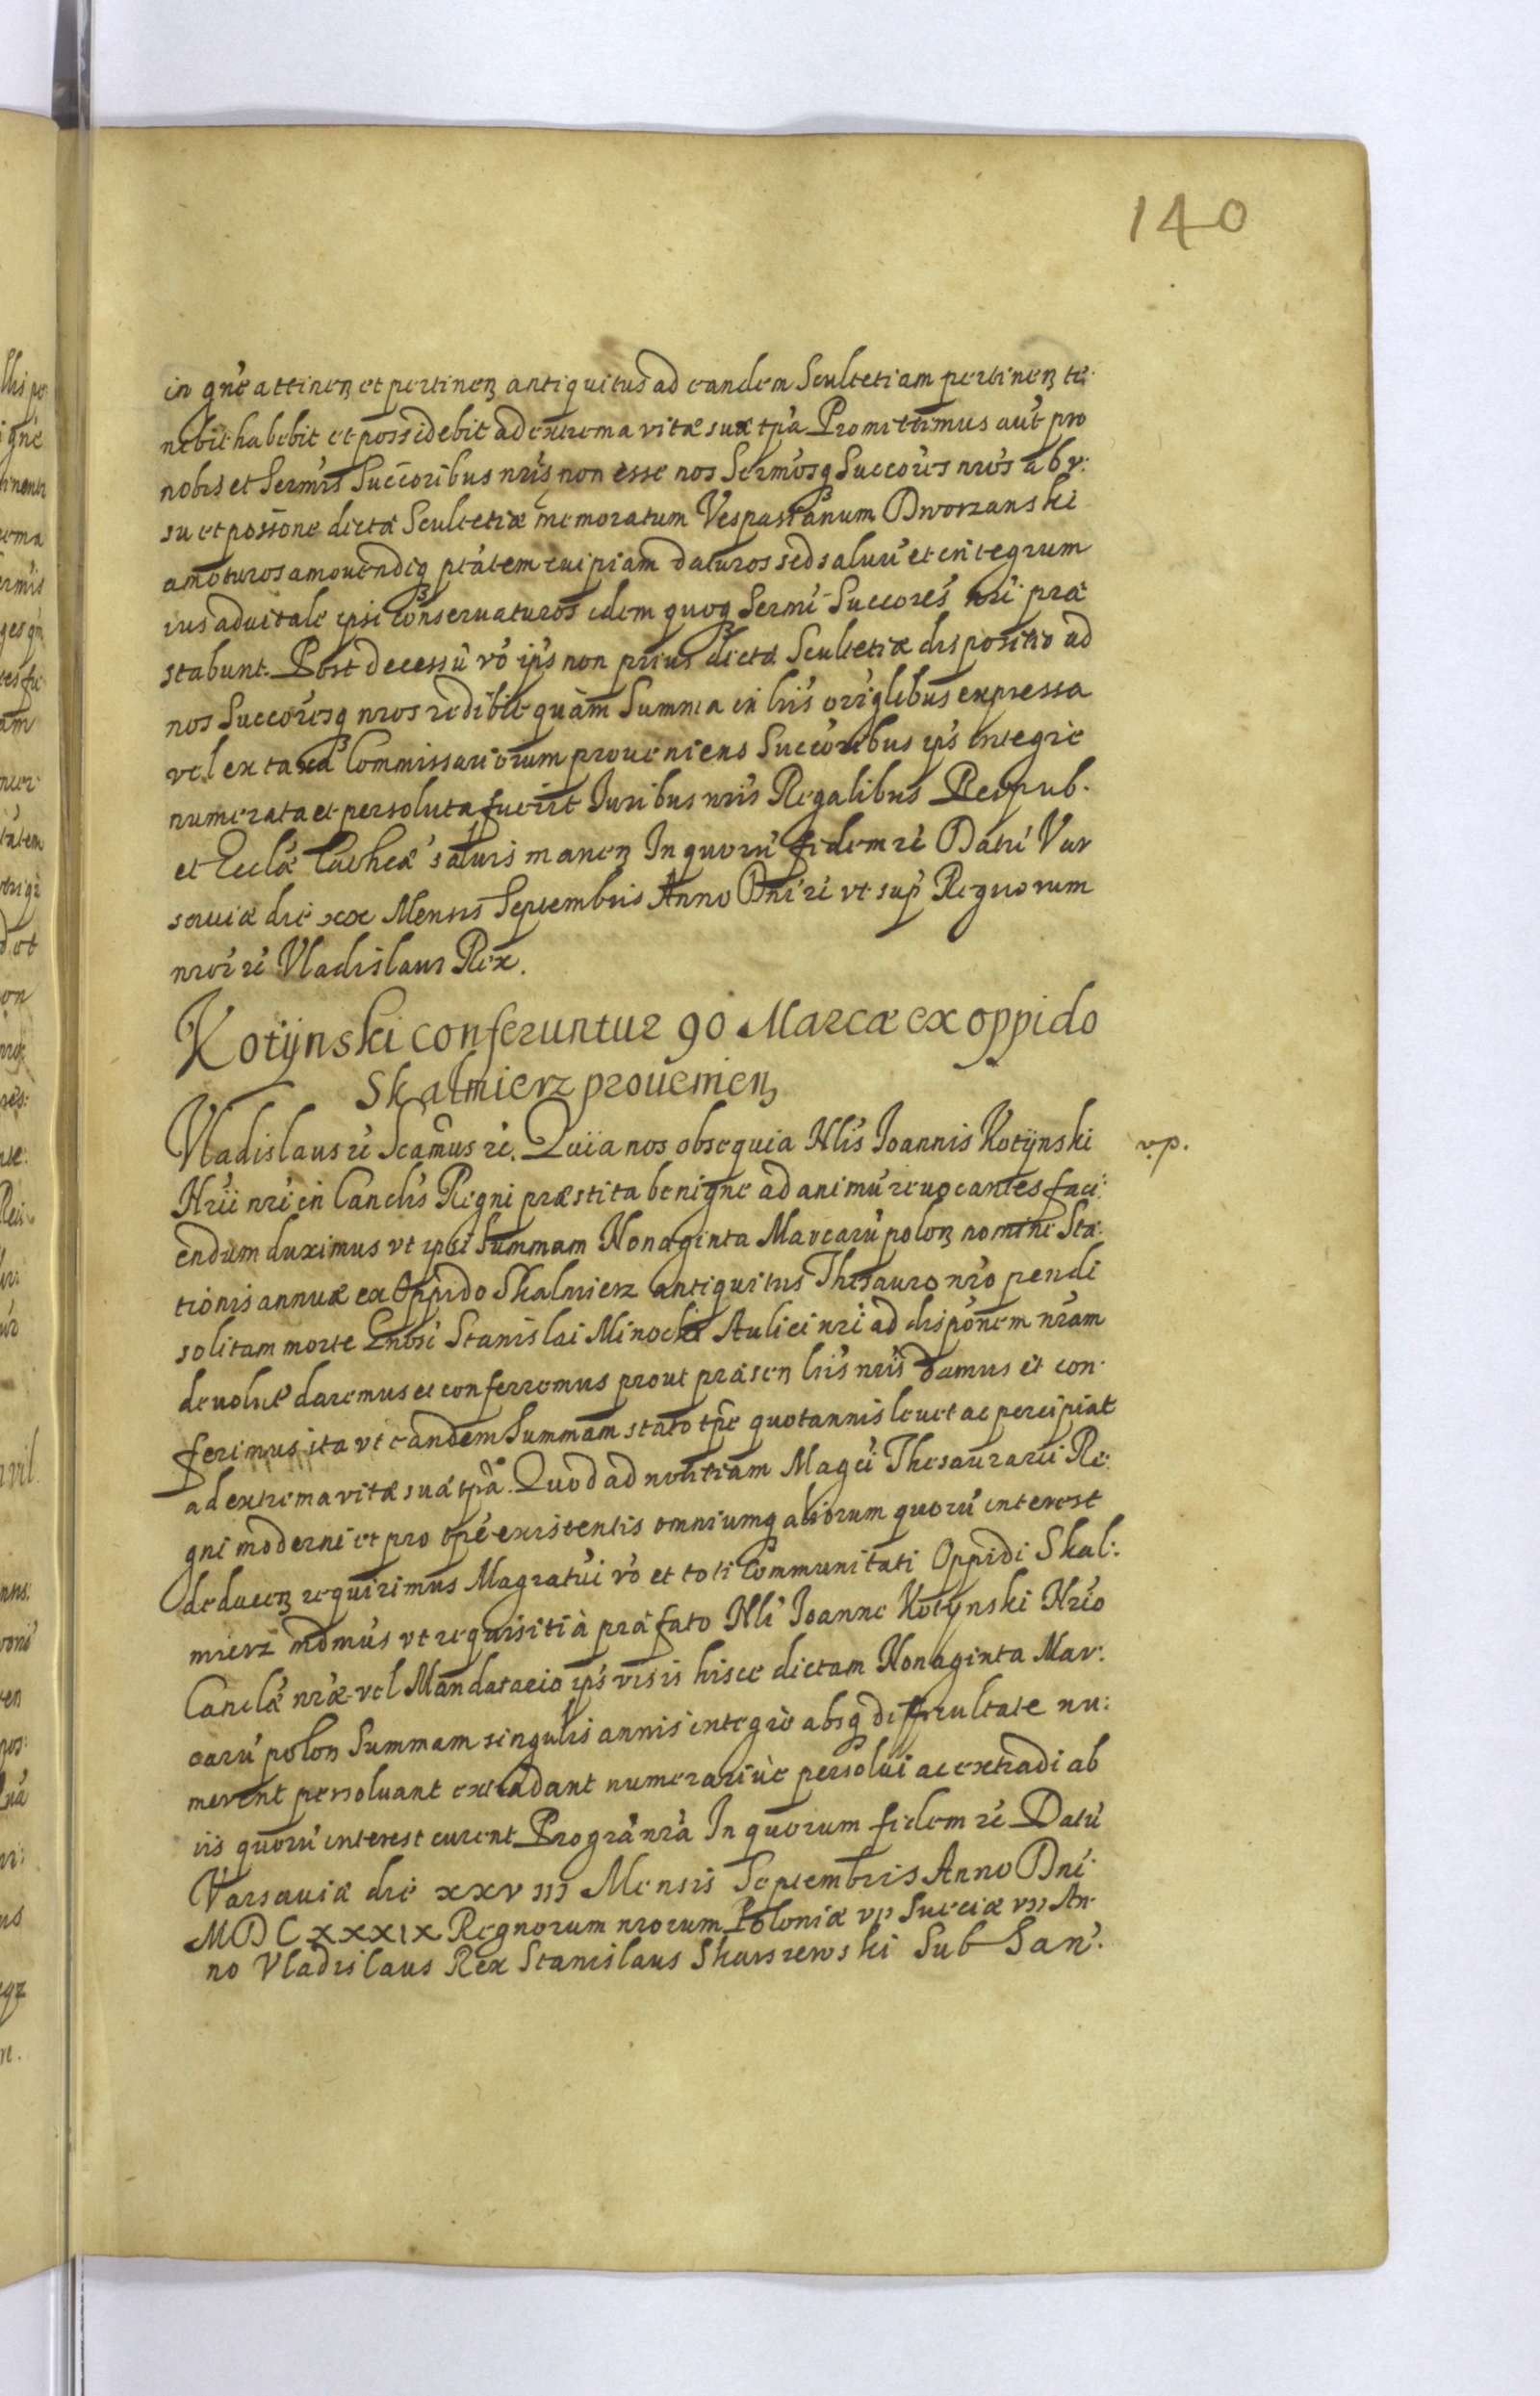 140
in gn̄e attinen et pertinen antiquitus ad eandem Scultetiam pertinen te
nebit habebit et possidebit ad extrema vitæ suæ tp̄a Promittimus aūt pro
nobis et Serm̄is Succoribus nr̄is non esse nos Serm̄osq Succōres nr̄os ab v:
su et possōne dictæ Scultetiæ memoratum Vespasianum Dworzanski
amoturos amouendiq ptātem cuipiam daturos sed saluū et integrum
ius aduitale ipsi conseruaturos idem quoq Serm̄i Succores nr̄i præ
stabunt. Post decessū vō ip̄s non prius dictæ Scultetiæ dispositio ad
nos Succōresq nros redibit quàm Summa in lrīs origlībus expressa
vel ex taxa Commissariorum proueniens Succōribus ip̄s integrè
numerata et persoluta fuerit Iuribus nr̄is Regalibus Reipub.
et Ecclǣ Catheǣ saluis manen In quorū fidem rē Datū Var
sauiæ die xx Mensis Septembris Anno Dnī rē vt sup̄ Regnorum
nrōr rē Vladislaus Rex.
Kotÿnski conferuntur 90 Marcæ ex oppido
Skalmierz prouenien
Vladislaus rē Scāmus rē. Quia nos obsequia Nlīs Joannis Kotÿnski
v.p.
Nrīi nrī in Canclīs Regni præstita benigne ad animū reuocantes faci
endum duximus vt ipsi Summam Nonaginta Marcarū polon nomine Sta
tionis annuæ ex Oppido Skalmierz antiquitus Thesauro nr̄o pendi
solitam morte Gnōsi Stanislai Minocki Aulici nrī ad dispōnem nrām
deuolut̄ daremus et conferremus prout præsen lrīs nrīs damus et con
ferimus ita vt eandem Summam stato tp̄re quotannis leuet ac percipiat
ad extrema vitæ suæ tp̄a. Quod ad notitiam Magci Thesaurarii Re
gni moderni et pro tp̄e existentis omniumq aliorum quorū interest
deducen requirimus Magratui vō et toti Communitati Oppidi Skal:
mierz mdmūs vt requisiti à præfato Nlī Joanne Kotÿnski Nrīo
Canclǣ nrǣ vel Mandatario ip̄s visis hisce dictam Nonaginta Mar:
carū polon Summam singulis annis integrè absq difficultate nu:
merent persoluant extradant numerariùe persolui ac extradi ab
iis quorū interest curent Pro gra nrā In quorum fidem rē Datū
Varsauiæ die xxviii Mensis Septembris Anno Dnī
MDCxxxix Regnorum nrorum Poloniæ vii Sueciæ viii An
no Vladislaus Rex Stanislaus Skarszewski Sub San̄.